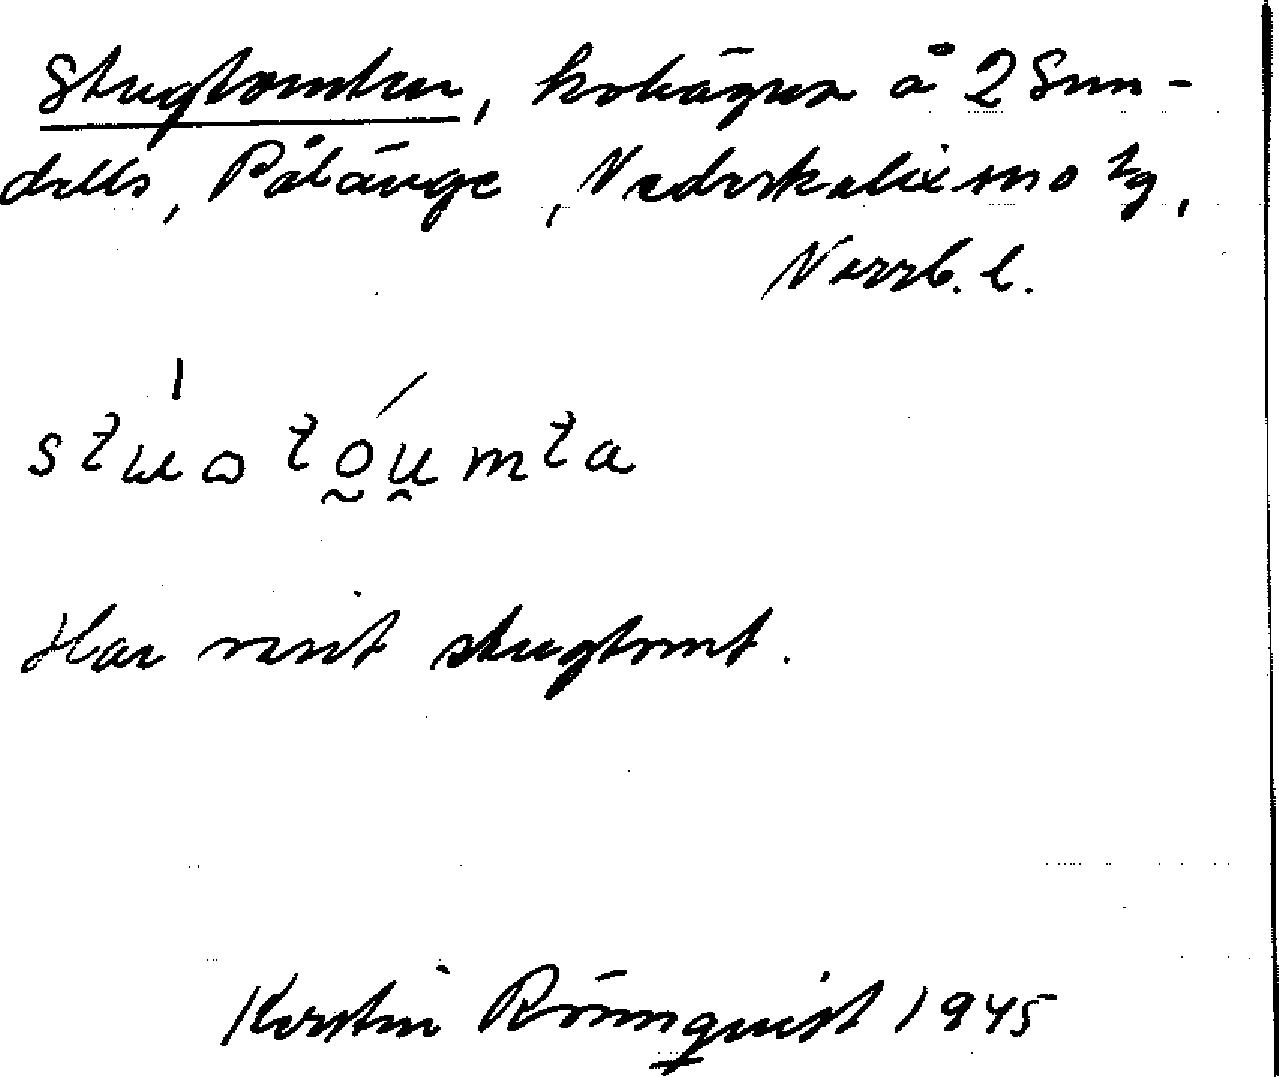 Stugtomten, kobägna å 2 Sun-
dells, Pålänge, Nederkalix sn o tg,
Norrb. l.
stuatóumta
Har varit stugtomt.
Kerstin Rönnquist 1945